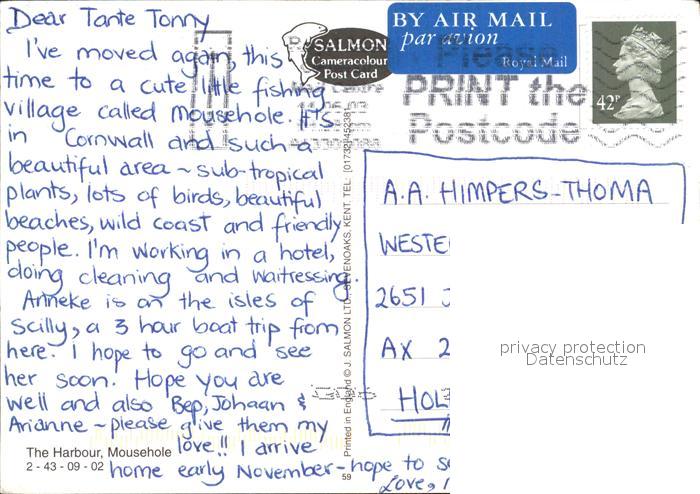 Dear Tante Tonny
I've moved again, this
time to a cute little fishing
village called Mousehole. It's
in Cornwall and such a
beautiful area ~ sub-tropical
plants, lots of birds, beautiful
beaches, wild coast and friendly
people. I'm working in a hotel,
doing cleaning and waitressing.
Anneke is on the isles of
Scilly, a 3 hour boat trip from
here. I hope to go and see
her soon. Hope you are
well and also Bep, Johaan &
Arianne ~ please give them my
love!! I arrive
home early November - hope to
Love,
The Harbour, Mousehole
2 - 43 - 09 - 02
SALMON
Cameracolour
Post Card
Printed in England © J. SALMON LTD., SEVENOAKS, KENT. TEL: (01732) 452381
59
BY AIR MAIL
par avion
Royal Mail
42P
Please
PRINT the
Postcode
A.A. HIMPERS-THOMA
WESTE
2651
AX 2
HOL
privacy protection
Datenschutz